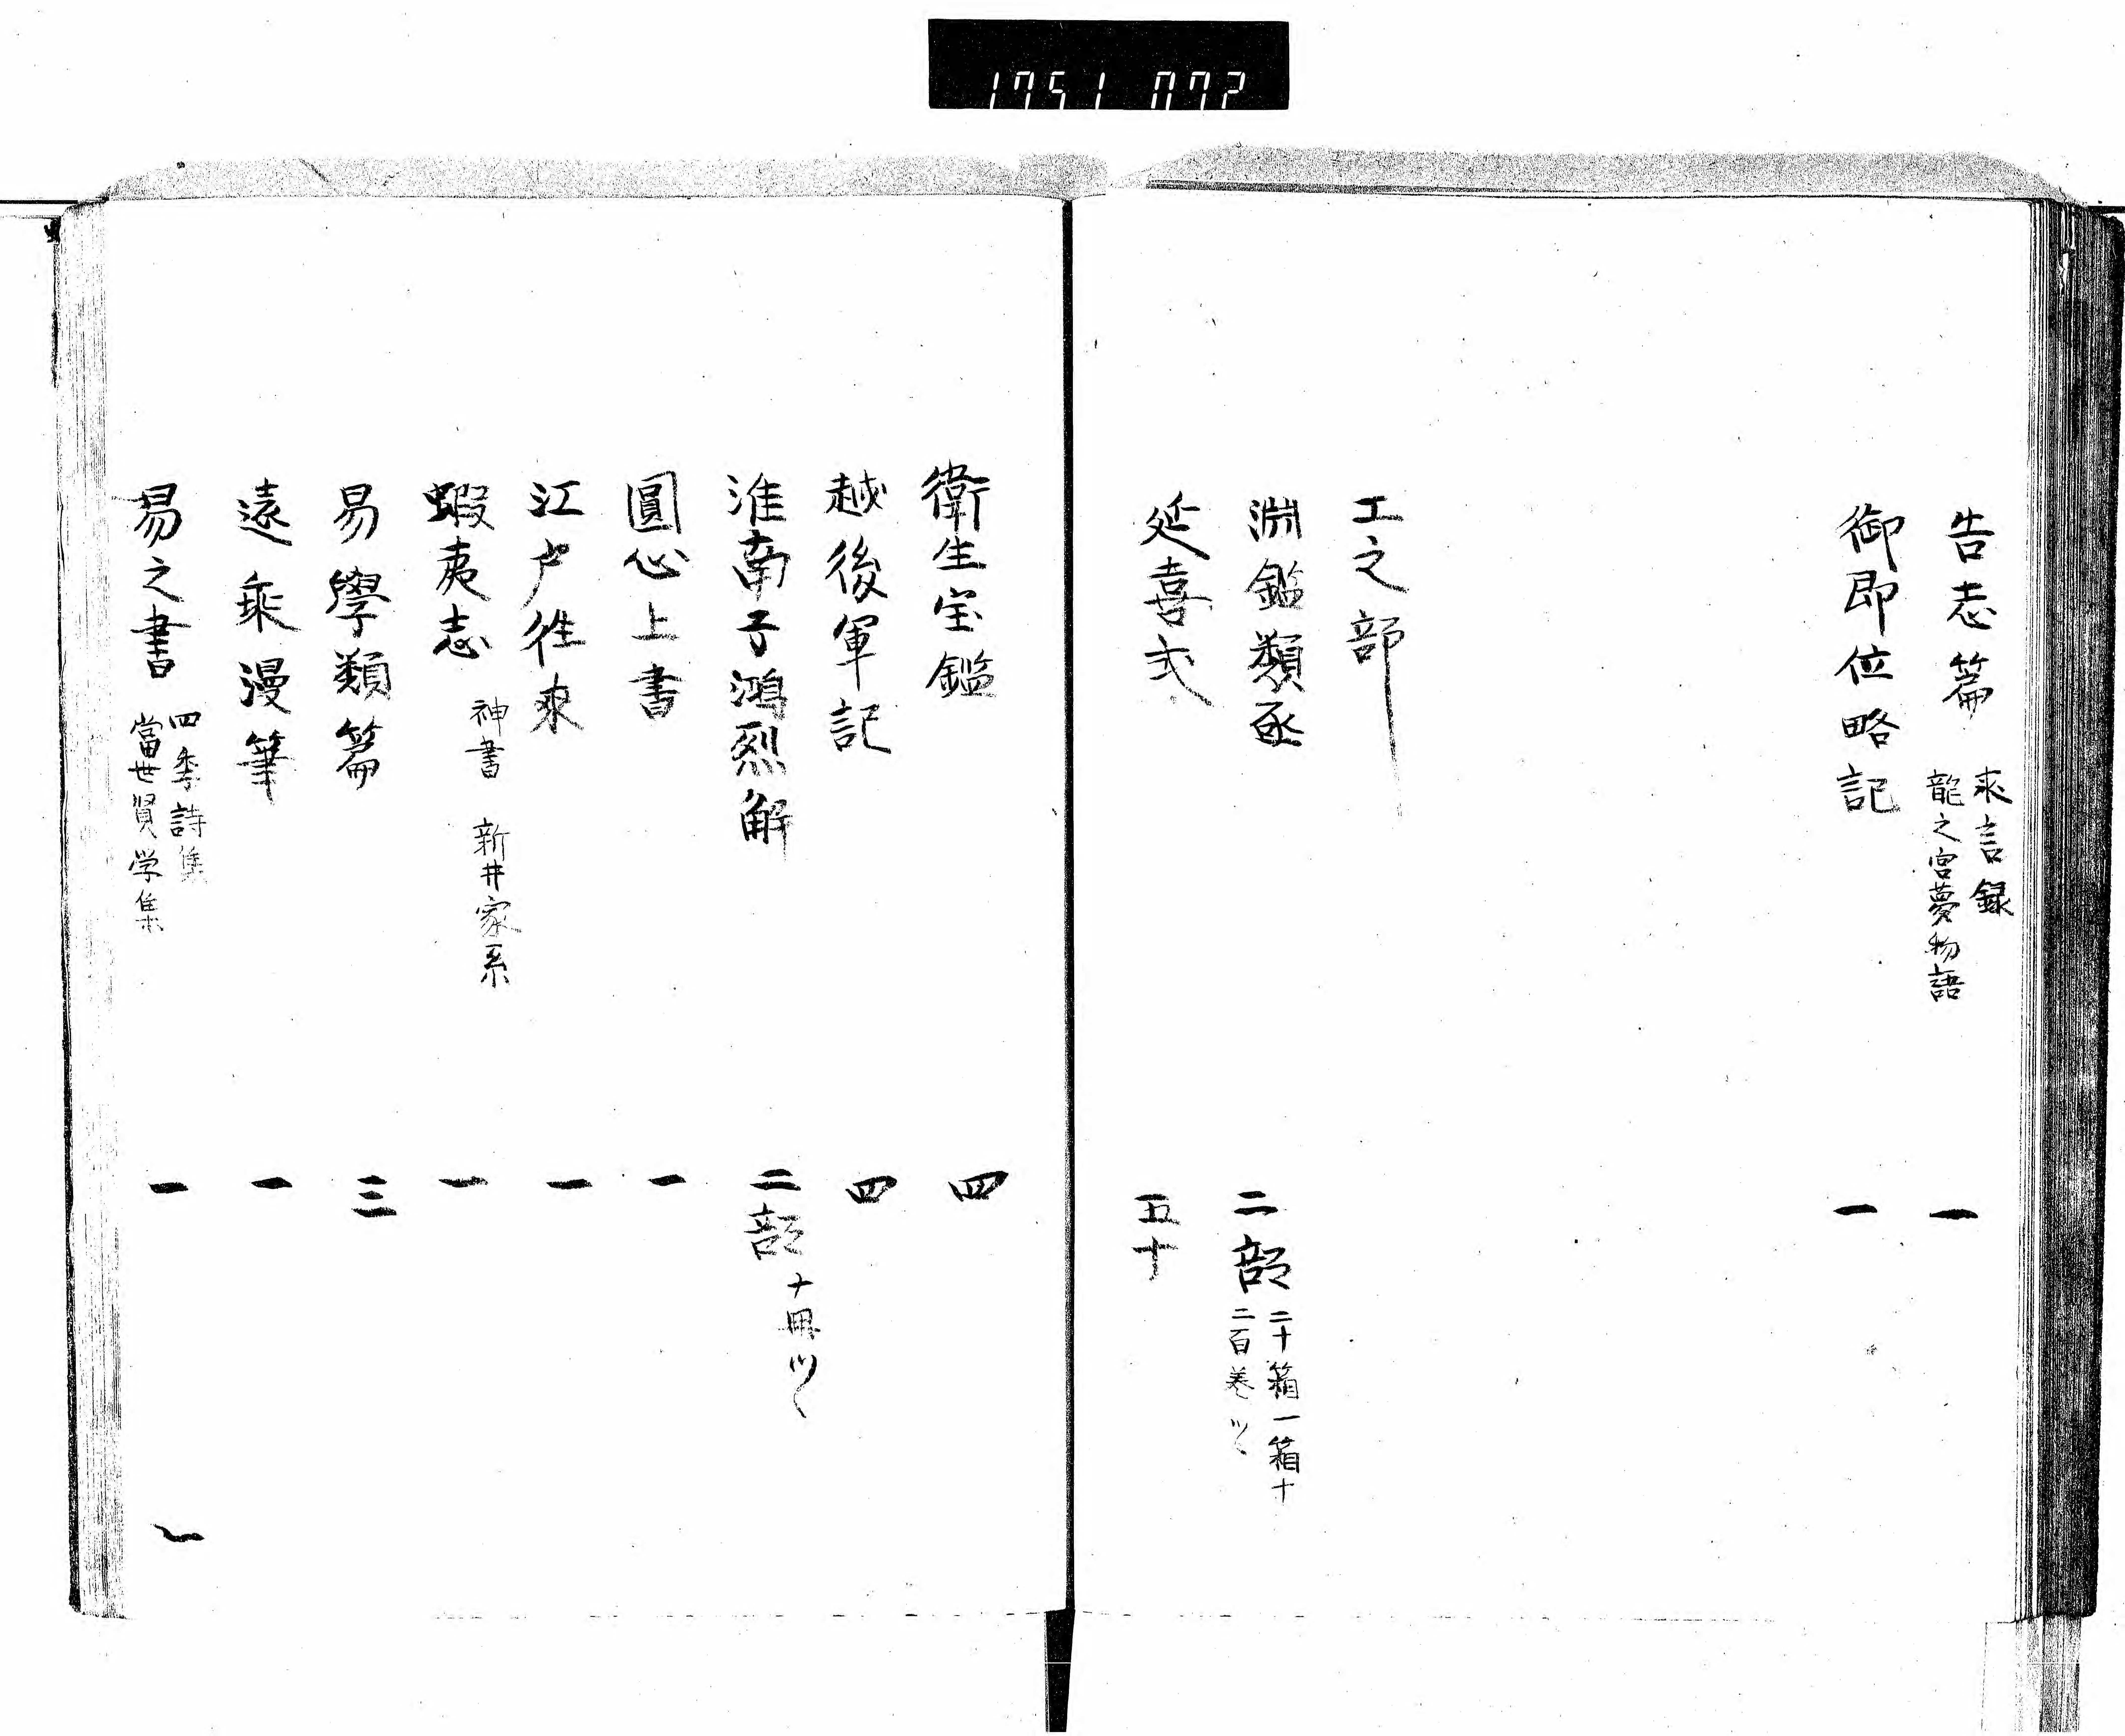 1751 072
告志篇 求言録 龍之宮夢物語 一
御即位略記 一
エ之部
淵鑑類函 二部 二十箱一箱十 二百巻ツヽ
延喜式 五十
衛生宝鑑 四
越後軍記 四
淮南子鴻烈解 二部 十冊ツヽ
圓心上書 一
江戸往来 一
蝦夷志 神書 新井家系 一
易學類篇 三
遠乗漫筆 一
易之書 四季詩集 當世賢学集 一